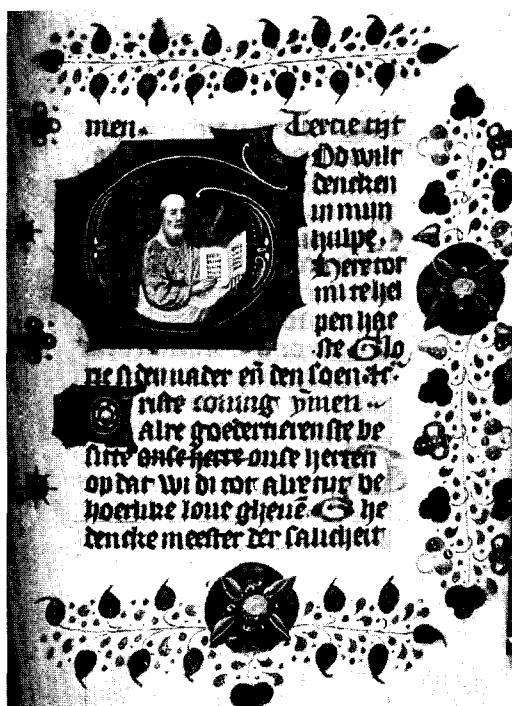 men. Tercie tijt
God wilt
dencken
in mijn
hulpe.
Here tot
mi te hel
pen hae
ste Glo
rie si den vader eñ den soen
Criste coning ymen
Alre goedertierenste be
sitte onse herre onse herten
op dat wi di tot alre tijt be
hoerlike loue gheuē. Ghe
dencke meester der salicheit